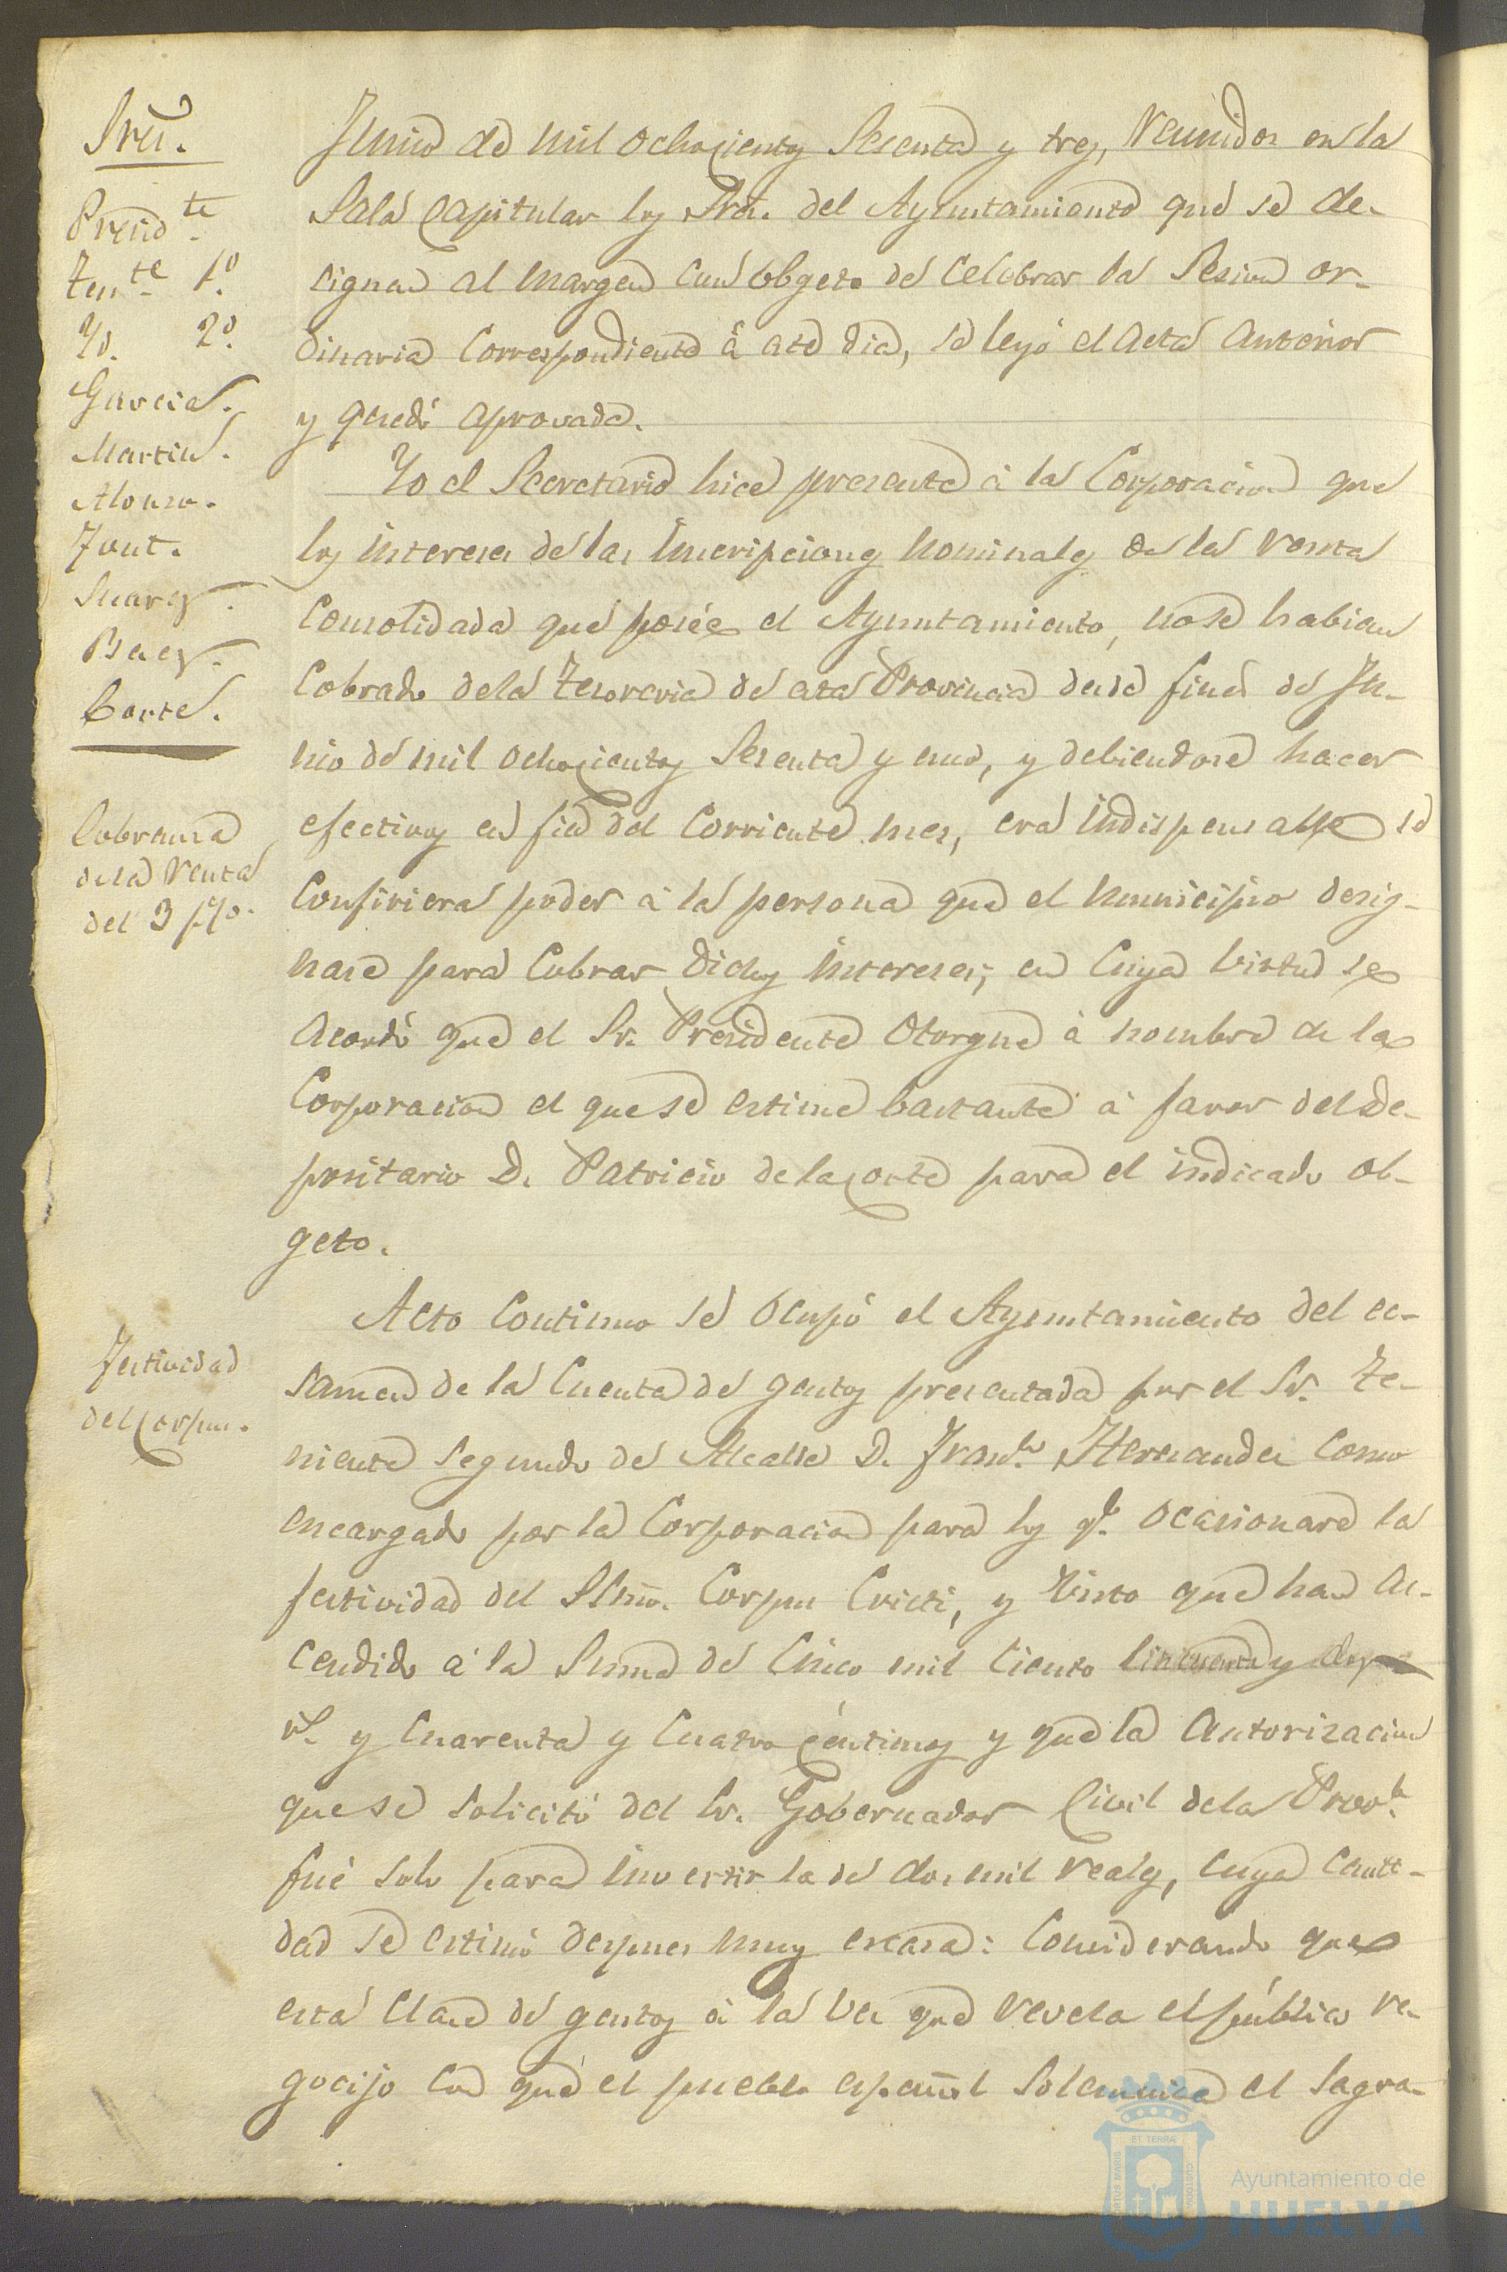 Sres.
Presid.te
Ten.te 1.º
Yd. 2.º
Garcia.
Martin.
Alonso.
Font.
Suarez.
Baez.
Corte.
Junio de mil ochocientos Sesenta y tres, reunidos en la
Sala Capitular los Sres. del Ayuntamiento que se de-
signan al margen con obgeto de celebrar la Sesion or-
dinaria correspondiente á este dia, se leyó el acta anterior
y quedó aprovada.
Cobranza
de la renta
del 3 p%.
Yo el Secretario hice presente á la Corporacion que
los intereses de las inscripciones nominales de la renta
Consolidada que posée el Ayuntamiento, no se habian
Cobrado de la Tesoreria de esta Provincia desde fines de Ju-
nio de mil ochocientos Sesenta y uno, y debiendose hacer
efectivos en fin del corriente mes, era indispensable se
Confiriera poder á la persona que el municipio desig-
nase para Cobrar dichos intereses; en cuya virtud se
acordó que el Sr. Presidente otorgue á nombre de la
Corporacion el que se estime bastante á favor del De-
positario D. Patricio de la Corte para el indicado ob-
geto.
Festividad
del Corpus.
Acto Continuo se ocupó el Ayuntamiento del ec-
samen de la Cuenta de gastos presentada por el Sr. Te-
niente Segundo de Alcalde D. Fran.co Hernandez como
encargado por la Corporacion para los q.e ocasionare la
festividad del SSmo. Corpus Cristi, y visto que han as-
cendido á la Suma de Cinco mil Ciento Cincuenta y dos
r.s y Cuarenta y Cuatro céntimos y que la autorizacion
que se solicitó del Sr. Gobernador Civil de la Prov.a
fué solo para invertir la de dos mil reales, cuya canti-
dad se estimó despues muy escasa: Considerando que
esta clase de gastos á la vez que revela el público re-
gocijo con que el pueblo español solemniza el Sagra-
ET TERRAE
Ayuntamiento de
HUELVA